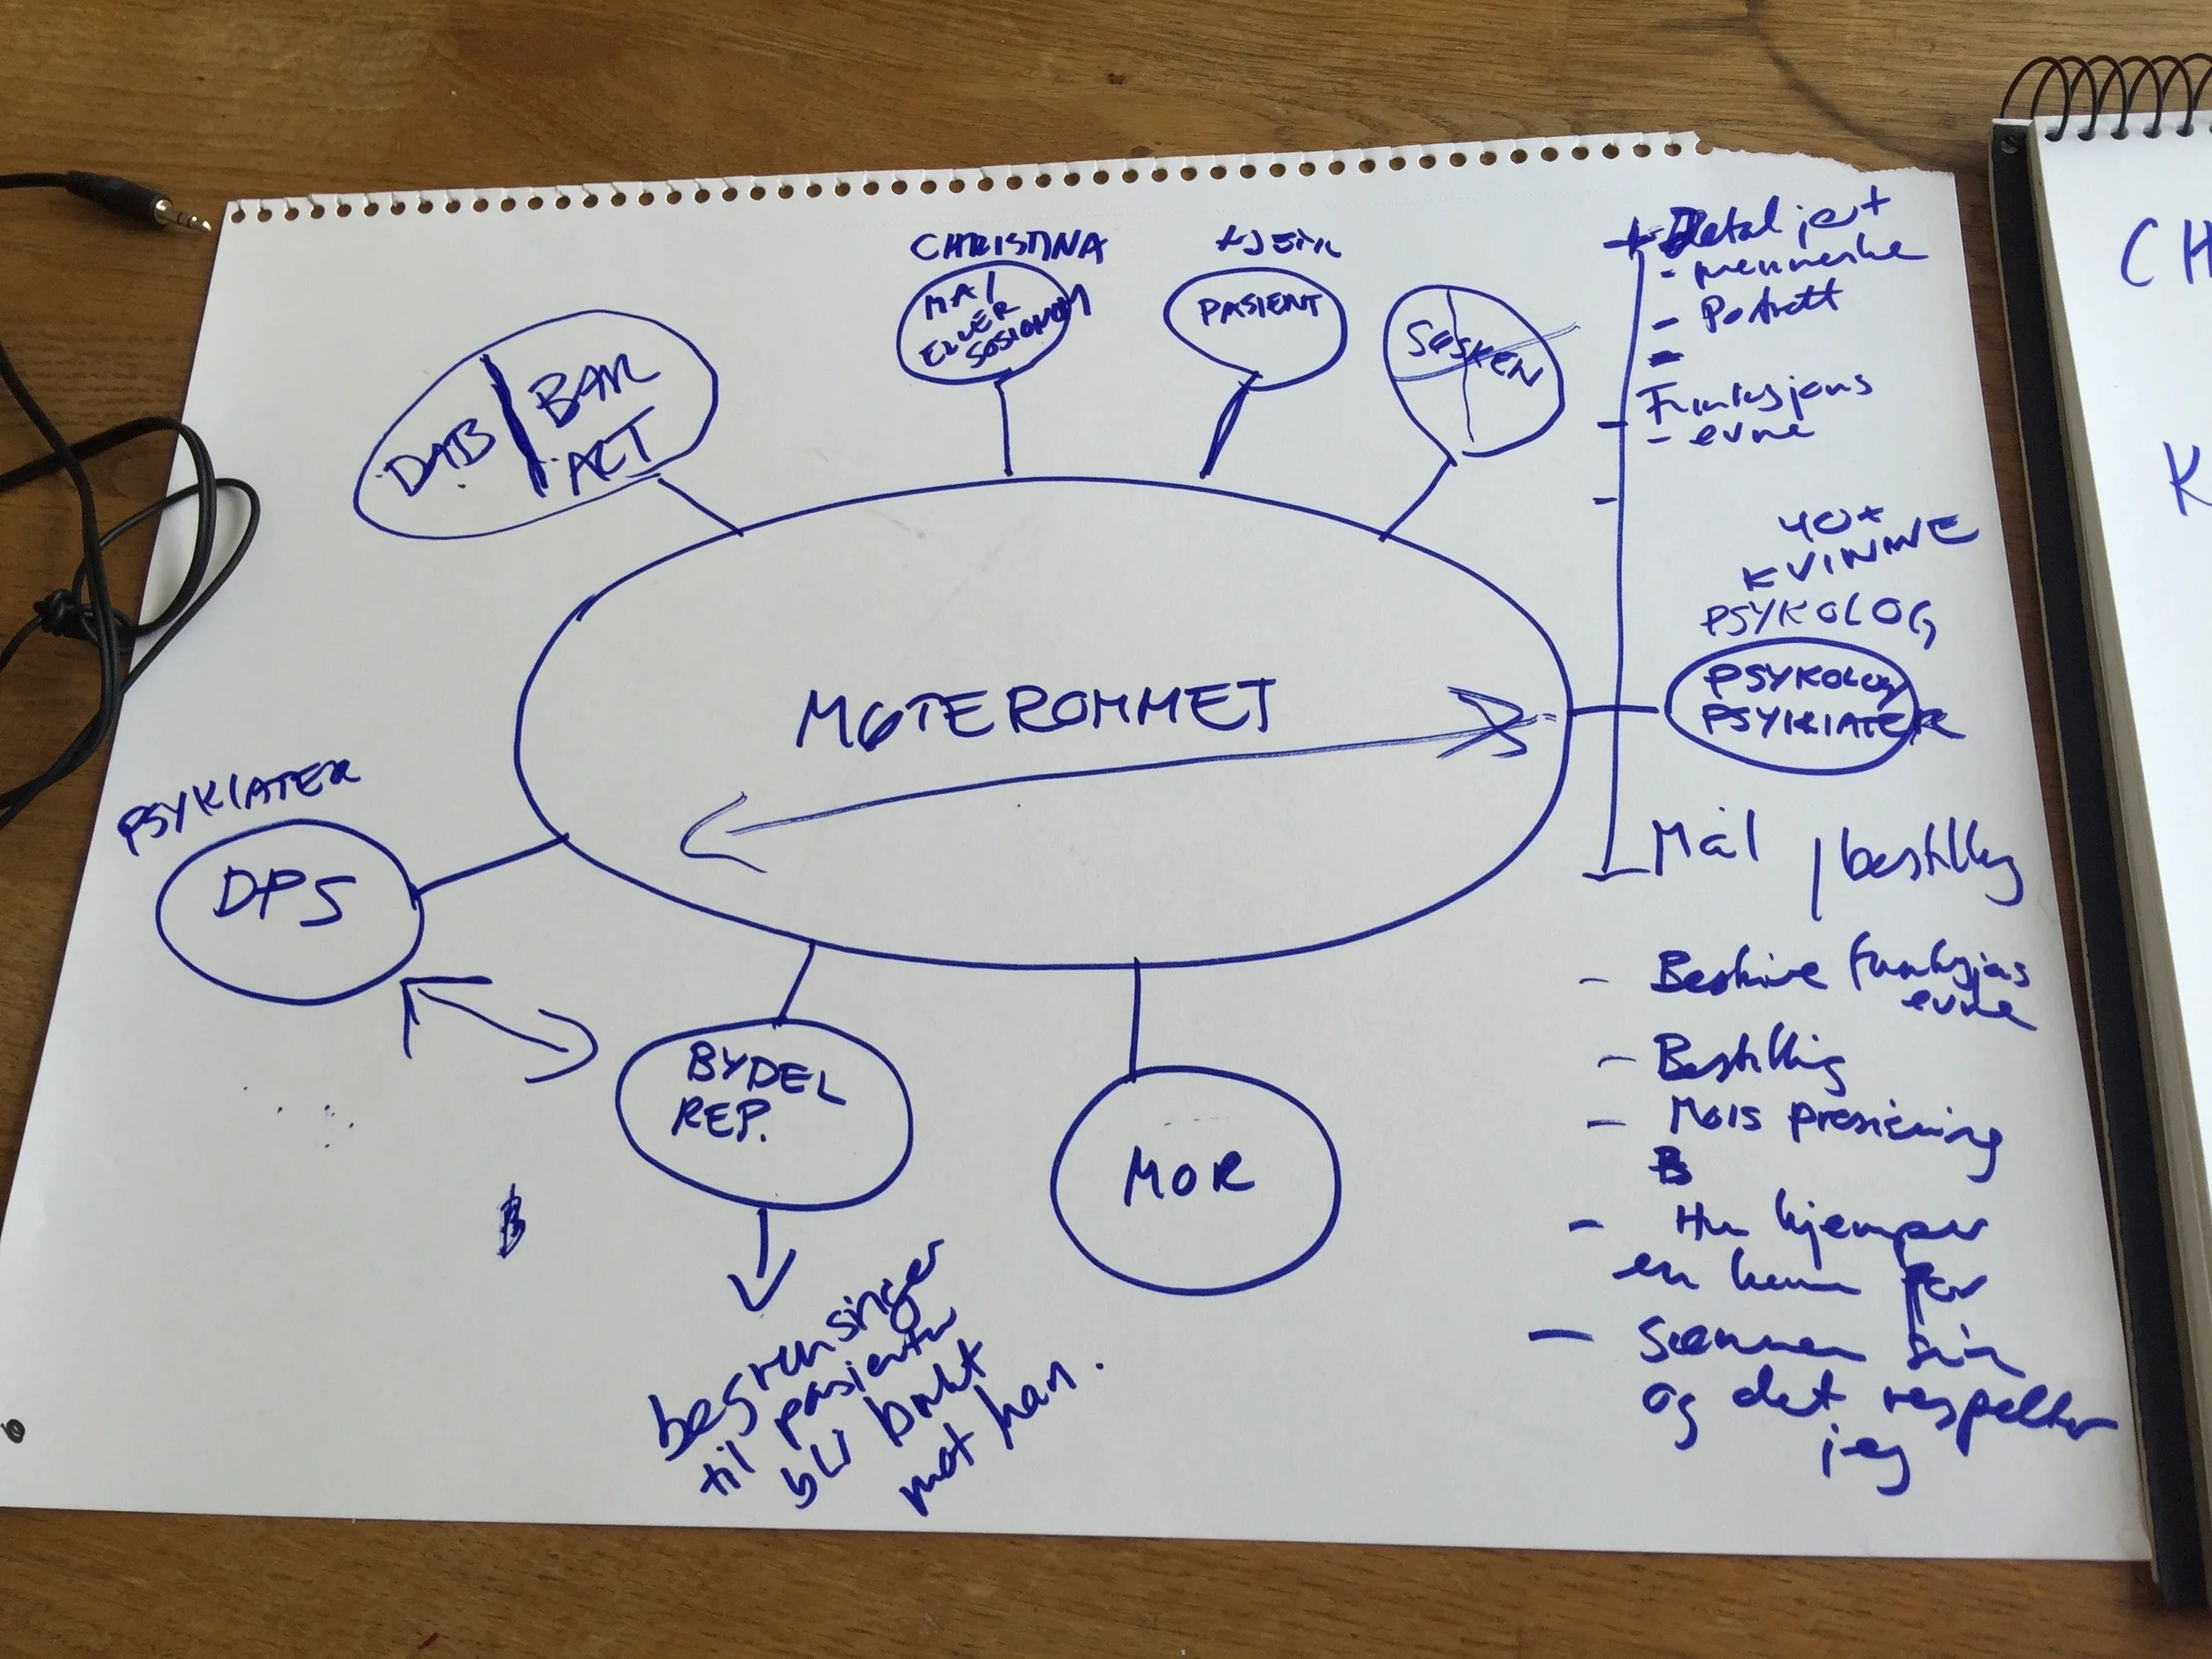 CHRISTINA
MAI
ELLER
SOSIONOM
PASIENT
SØSKEN
DAB
BAR
ACT
MØTEROMMET
PSYKIATER
DPS
BYDEL
REP.
MOR
begrensinger
til pasienten
bli brukt
mot han.
B
Detaljert
- menneske
- Portrett
-
Funksjons
- evne
40+
KVINNE
PSYKOLOG
PSYKOLOG
PSYKIATER
Mål / bestilling
- Beskrive funksjons
evne
- Bestilling
- Mors presisering
B
- Hun kjemper
en kamp for
- Sønnen sin
og det respekterer
jeg
CH
K